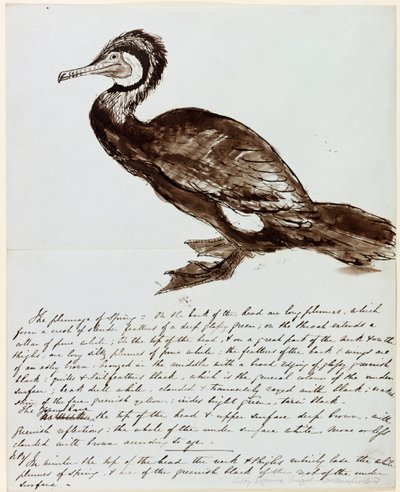 The plumage of Spring = On the back of the head are long plumes, which
form a crest of slender feathers of a deep glossy green; on the throat extends a
collar of pure white; On the top of the head, & on a great part of the neck & on the
thighs are long silky plumes of pure white; the feathers of the back & wings are
of an ashy brown, bronzed in the middle with a broad edging of glossy greenish
black; quills & tail feathers black, which is the general colour of the under
surface; beak dark
of the face greenish yellow; irides bright green; tarsi black.
The Young have
the top of the head & upper surface deep brown, with
greenish reflections; the whole of the under surface white more or less
clouded with brown according to age.
In winter the top of the head the neck & thighs entirely lose the white
plumes of Spring, & are of the greenish black of the rest of the under
surface.